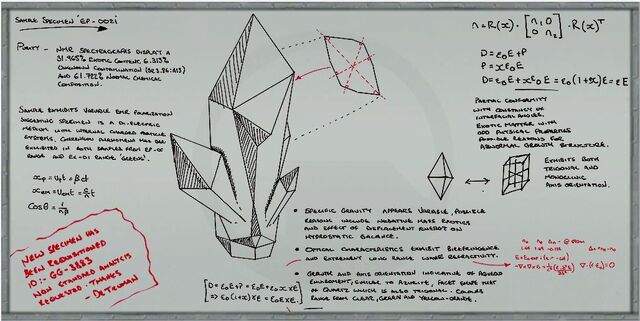 SAMPLE SPECIMEN 'EP-0021'
PURITY - NMR SPECTROGRAPHS DISPLAY A
31.965% EXOTIC CONTENT, 6.313%
UNKNOWN CONTAMINATION
AND 61.722% NORMAL CHEMICAL
COMPOSITION.
SAMPLE EXHIBITS VARIABLE EMR POLARIZATION
SUGGESTING SPECIMEN IS A DI-ELECTRIC
MEDIUM WITH INTERNAL CHARGED PARTICLE
SYSTEMS. CHERENKOV PHENOMENON HAS
EXHIBITED IN BOTH SAMPLES FROM EP-
RANGE AND RANGE 'GREENS'.
xp = υpt = βct
xem = υemt = c/n t
Cosθ = 1/nβ
NEW SPECIMEN HAS
BEEN REQUISITIONED
ID:- GG-3883
NON STANDARD ANALYSIS
REQUESTED. THANKS
n = R(x) · [n1 0
0 n2] · R(x)T
D = ε0E + P
P = xε0E
D = ε0E + xε0E = ε0(1+x)E = εE
PARTIAL CONFORMITY
WITH CONSTANCY OF
INTERFACIAL ANGLES.
EXOTIC MATTER WITH
ODD PHYSICAL PROPERTIES
POSSIBLE REASONS FOR
ABNORMAL GROWTH STRUCTURE.
EXHIBITS BOTH
TRIGONAL AND
MONOCLINIC
AXIS ORIENTATION.
• SPECIFIC GRAVITY APPEARS VARIABLE, POSSIBLE
REASONS INCLUDE NEGATIVE MASS EXOTICS
AND EFFECT OF DISPLACEMENT ON
HYDROSTATIC BALANCE.
• OPTICAL CHARACTERISTICS EXHIBIT BIREFRINGENCE
AND EXTREMELY LONG RANGE REFRACTIVITY.
• GROWTH AND AXIS ORIENTATION INDICATIVE OF AQUEOUS
ENVIRONMENT, SIMILAR TO AZURITE, FACET SHAPE
OF QUARTZ WHICH IS ALSO TRIGONAL. COLOURS
RANGE FROM CLEAR, GREEN AND YELLOW-ORANGE.